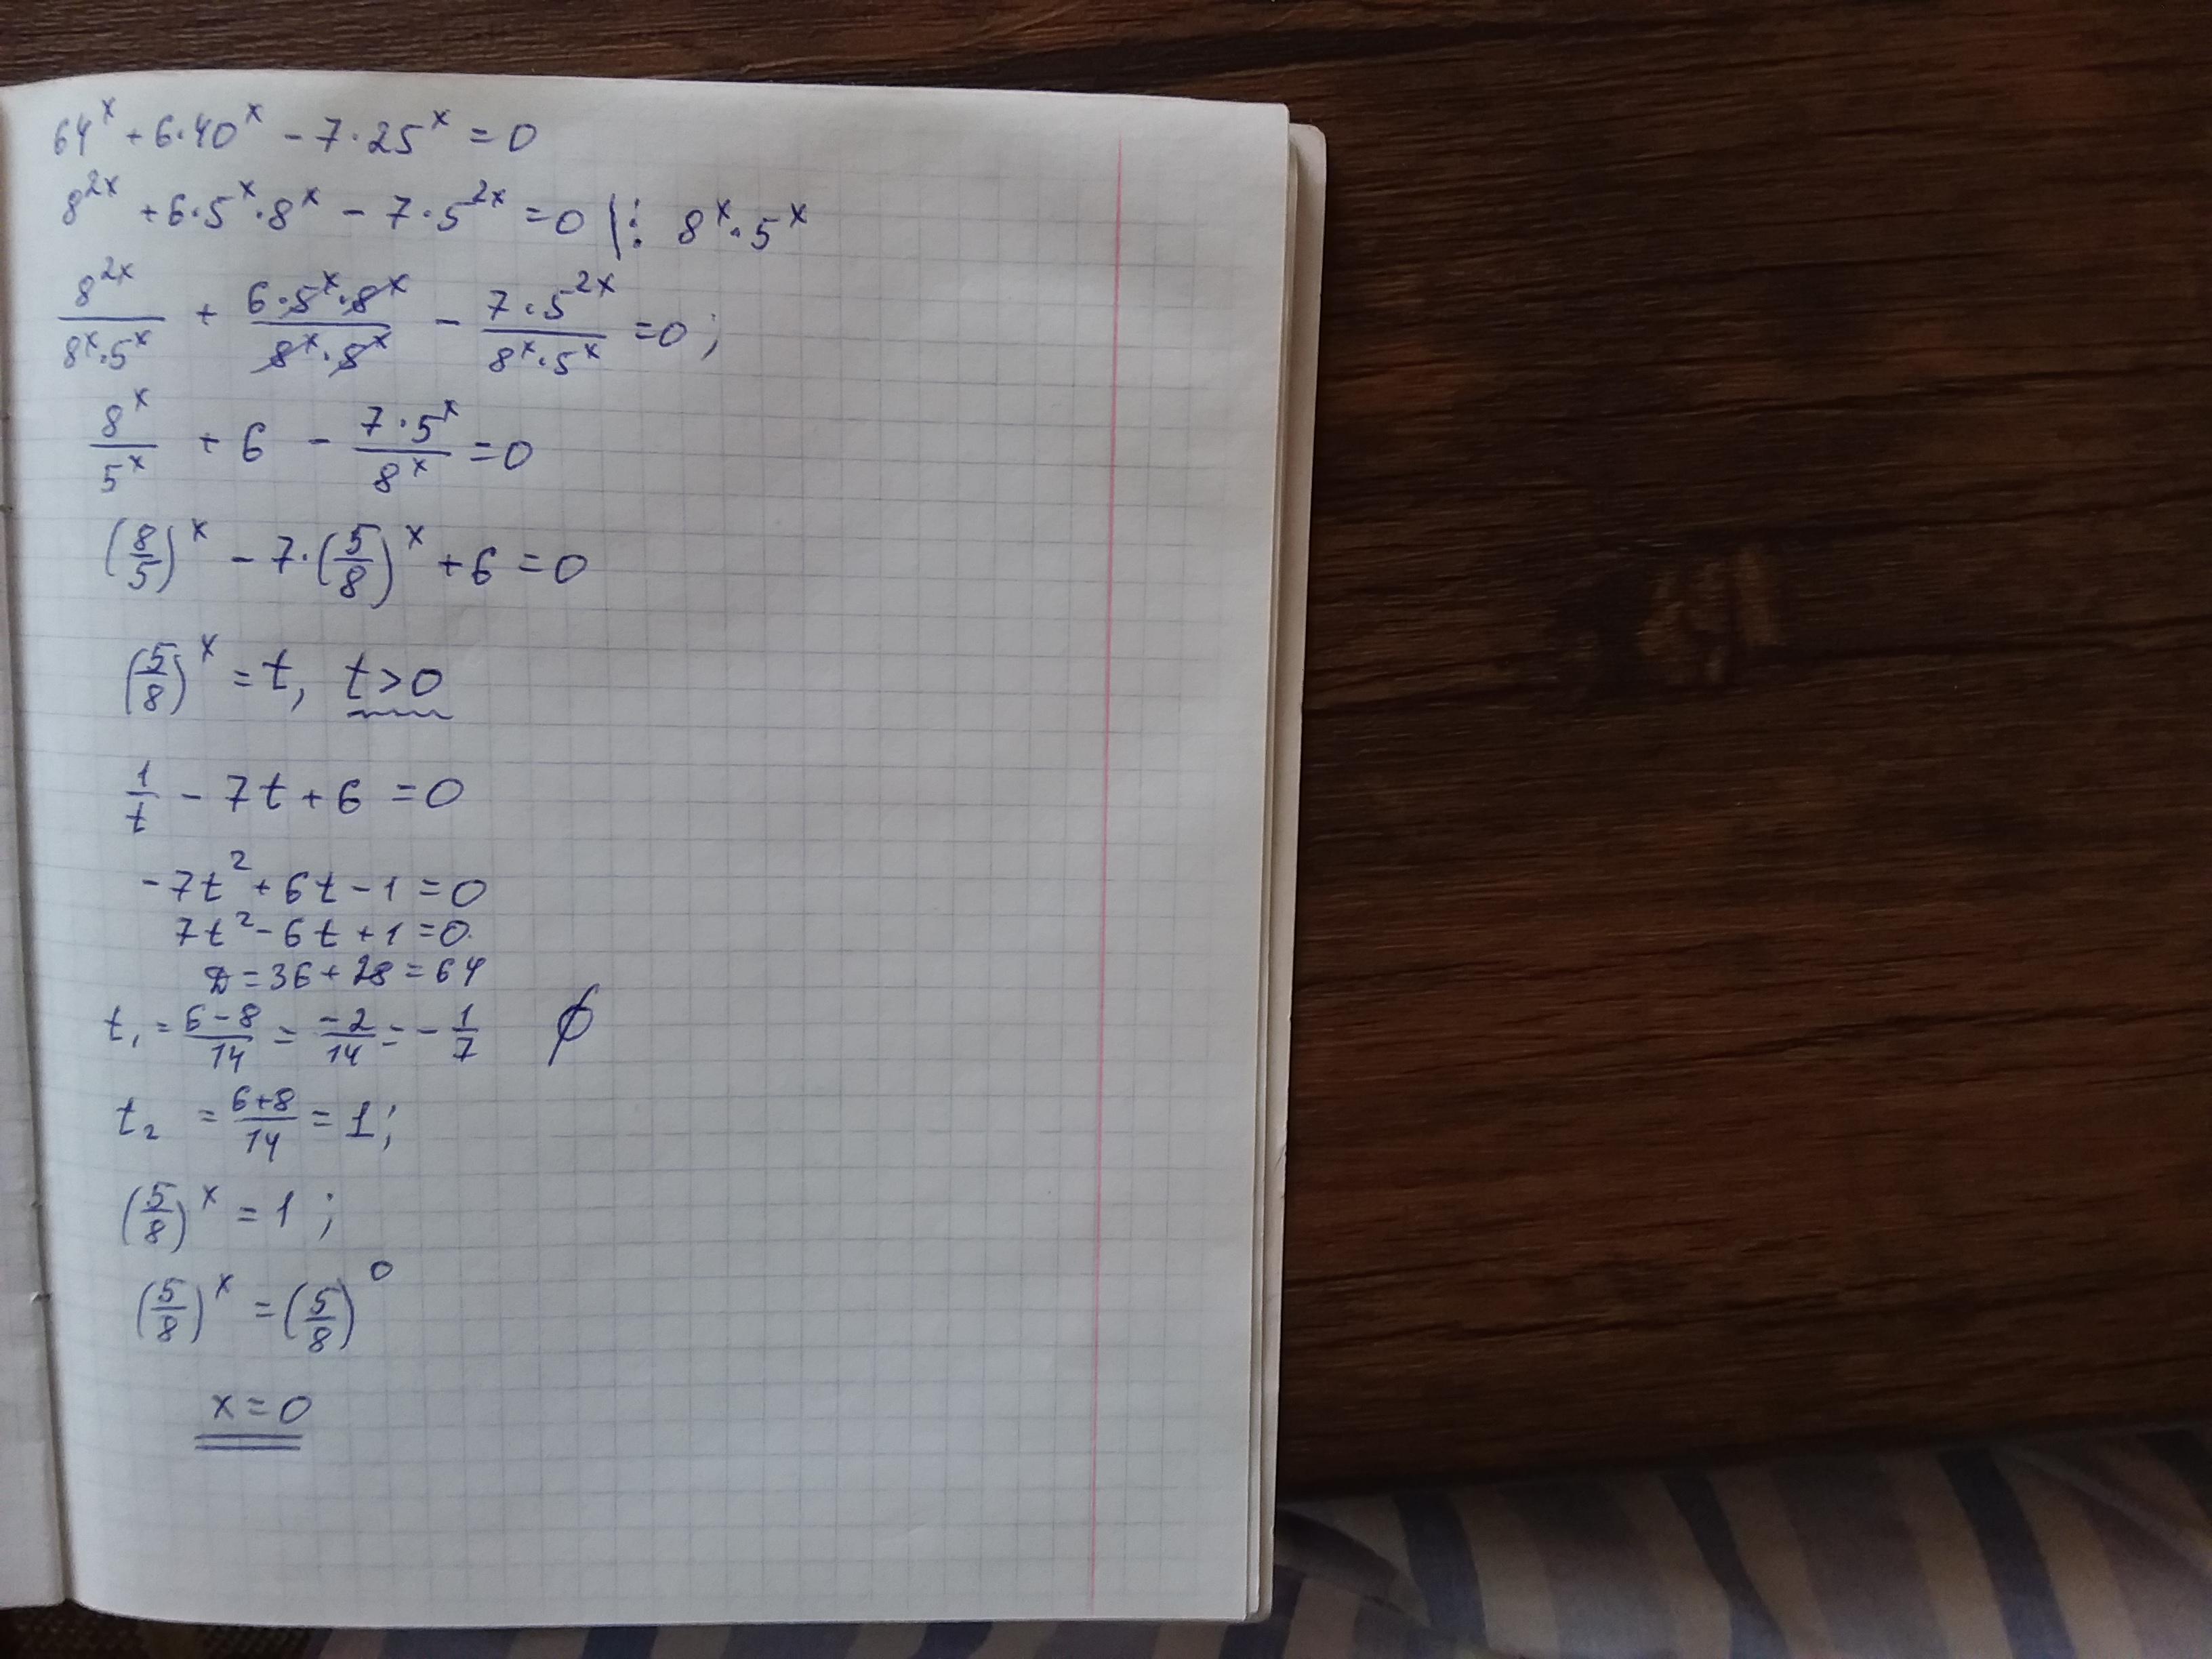 64^x + 6·40^x - 7·25^x = 0
8^{2x} + 6·5^x·8^x - 7·5^{2x} = 0 |: 8^x·5^x
\frac{8^{2x}}{8^x·5^x} + \frac{6·5^x·8^x}{8^x·8^x} - \frac{7·5^{2x}}{8^x·5^x} = 0;
\frac{8^x}{5^x} + 6 - \frac{7·5^x}{8^x} = 0
(\frac{8}{5})^x - 7·(\frac{5}{8})^x + 6 = 0
(\frac{5}{8})^x = t, t>0
\frac{1}{t} - 7t + 6 = 0
-7t^2 + 6t - 1 = 0
7t^2 - 6t + 1 = 0.
D = 36 + 28 = 64
t_1 = \frac{6-8}{14} = \frac{-2}{14} = -\frac{1}{7} ∅
t_2 = \frac{6+8}{14} = 1;
(\frac{5}{8})^x = 1;
(\frac{5}{8})^x = (\frac{5}{8})^0
x = 0